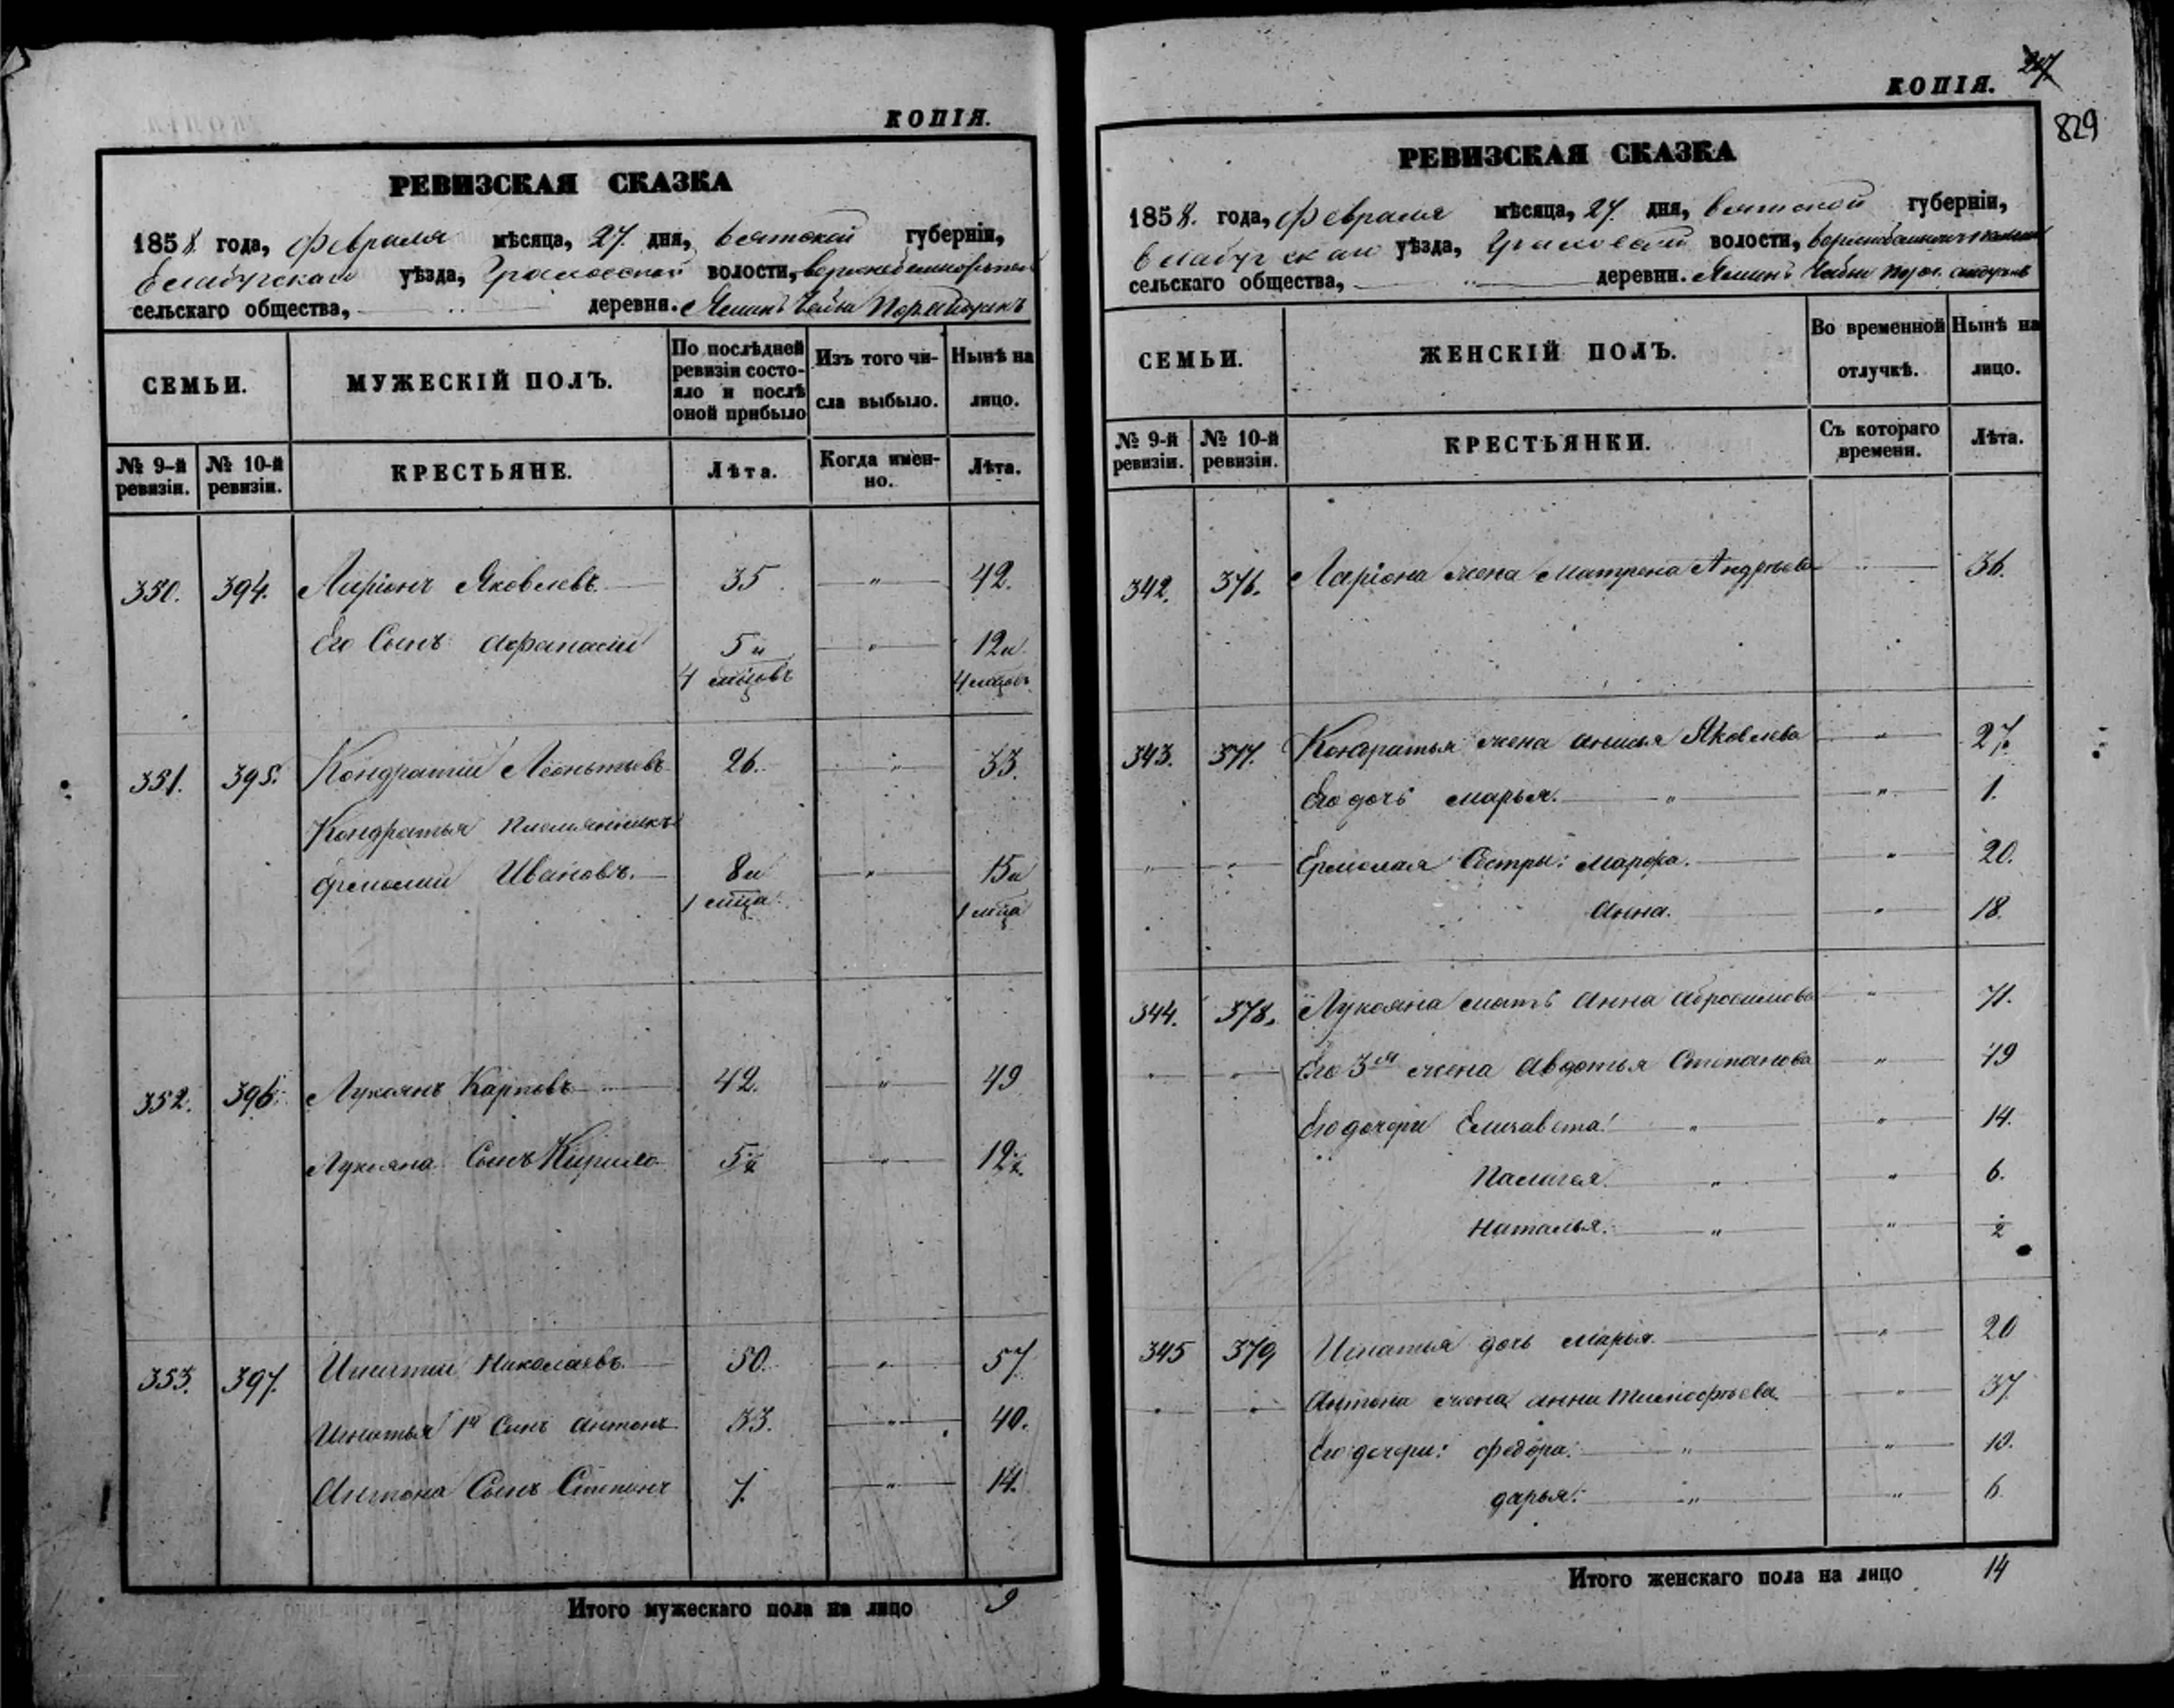 КОПІЯ.
РЕВИЗСКАЯ СКАЗКА
1858. года, Февраля мѣсяца, 27. дня, Вятской губерніи,
Елабугскаго уѣзда, Граховской волости,
сельскаго общества, " деревня.
СЕМЬИ.
МУЖЕСКІЙ ПОЛЪ.
По послѣдней ревизіи состояло и послѣ оной прибыло
Изъ того числа выбыло.
Нынѣ на лицо.
№ 9-й ревизіи.
№ 10-й ревизіи.
КРЕСТЬЯНЕ.
Лѣта.
Когда именно.
Лѣта.
350. 394. Ларіонъ Яковлевъ. 35 " 42.
Его Сынъ Афанасій 5 и " 12 и
4 мцовъ 4 мцовъ
351. 395. Кондратій Леонтьевъ 26. " 33.
Кондратья племянникъ
Ермолай Ивановъ. 8 и " 15 и
1 мца 1 мца
352. 396. Лукоянъ Карповъ 42. " 49
Лукояна Сынъ Кирило 5½ " 12½.
353. 397. Игнатій Николаевъ. 50. " 57
Игнатья 1й Сынъ Антонъ 33. " 40.
Антона Сынъ Степанъ 7. " 14.
Итого мужескаго пола на лицо 9
КОПІЯ.
829
РЕВИЗСКАЯ СКАЗКА
1858. года, Февраля мѣсяца, 27. дня, Вятской губерніи,
Елабугскаго уѣзда, Граховской волости,
сельскаго общества, " деревни.
СЕМЬИ.
ЖЕНСКІЙ ПОЛЪ.
Во временной отлучкѣ.
Нынѣ на лицо.
№ 9-й ревизіи.
№ 10-й ревизіи.
КРЕСТЬЯНКИ.
Съ котораго времени.
Лѣта.
342. 376. Ларіона жена Матрена Андреева " 36.
343. 377. Кондратья жена Анисья Яковлева " 27.
Его дочь Марья. " " 1.
" " Ермолая Сестры: Марфа. " 20.
Анна. " 18.
344. 378. Лукояна мать Анна Абросимова " 71.
" " Его 3я жена Авдотья Степанова " 49
Его дочери Елизавета. " " 14.
Палагея. " " 6.
Наталья. " " ½
345 379 Игнатья дочь Марья. " 20
" " Антона жена Анна Тимофѣева " 37
Его дочери: Федора. " " 13.
Дарья. " " 6.
Итого женскаго пола на лицо 14